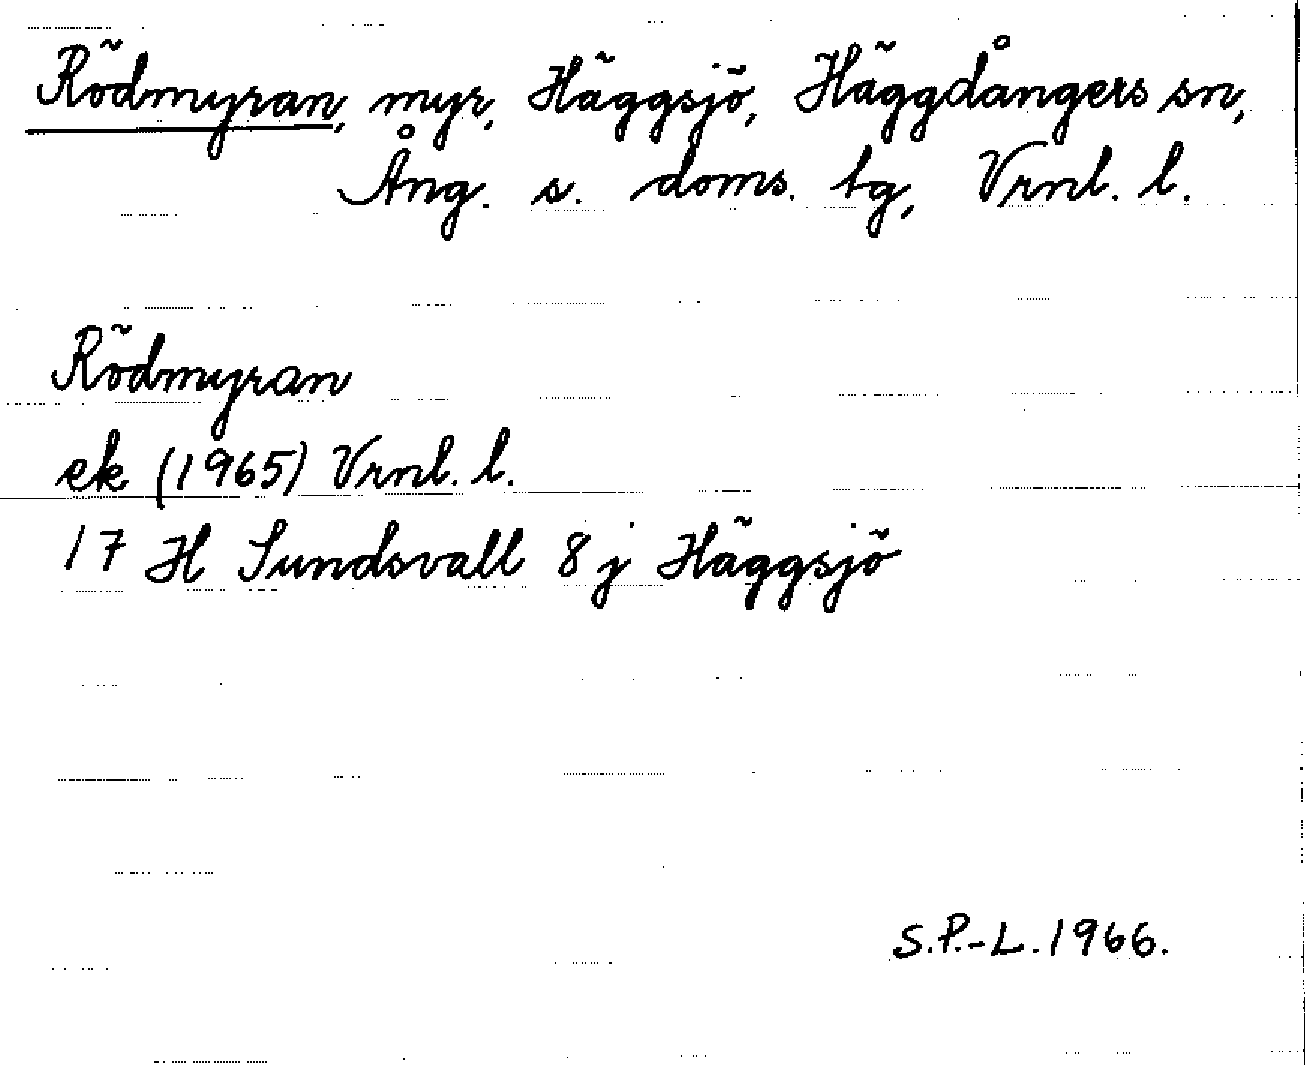 Rödmyran, myr, Häggsjö, Häggdångers sn,
Ång. s. doms. tg, Vrnl. l.
Rödmyran
ek (1965) Vrnl. l.
17 H Sundsvall 8 j Häggsjö
S.P.-L. 1966.